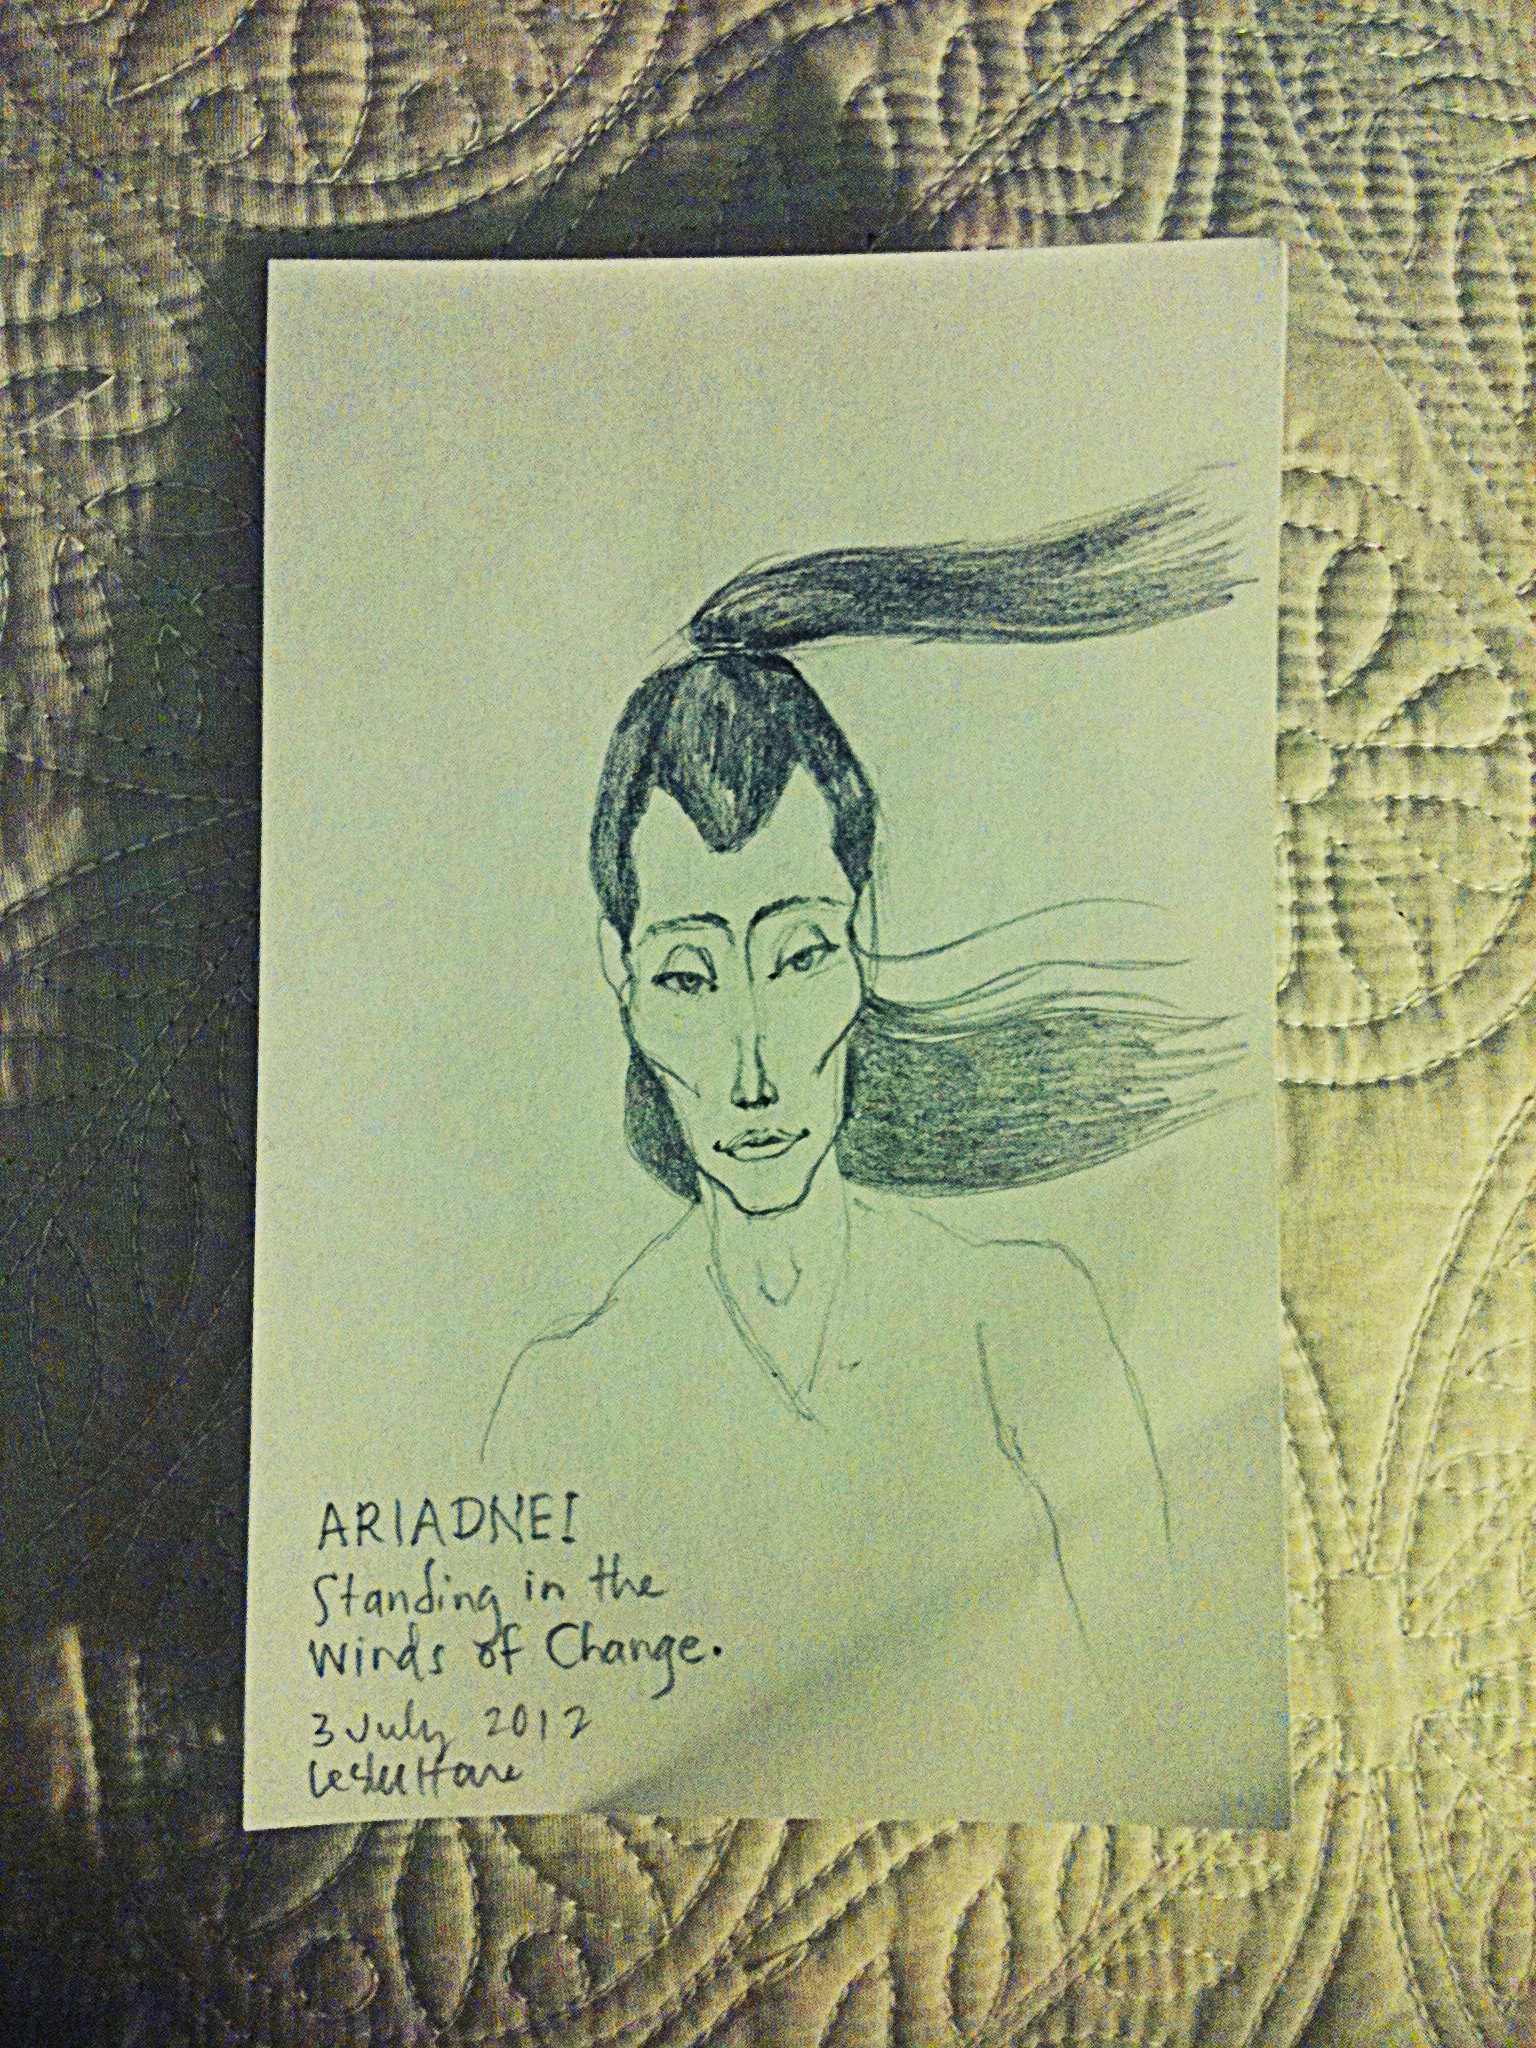 ARIADNE!
Standing in the
Winds of Change.
3 July 2012